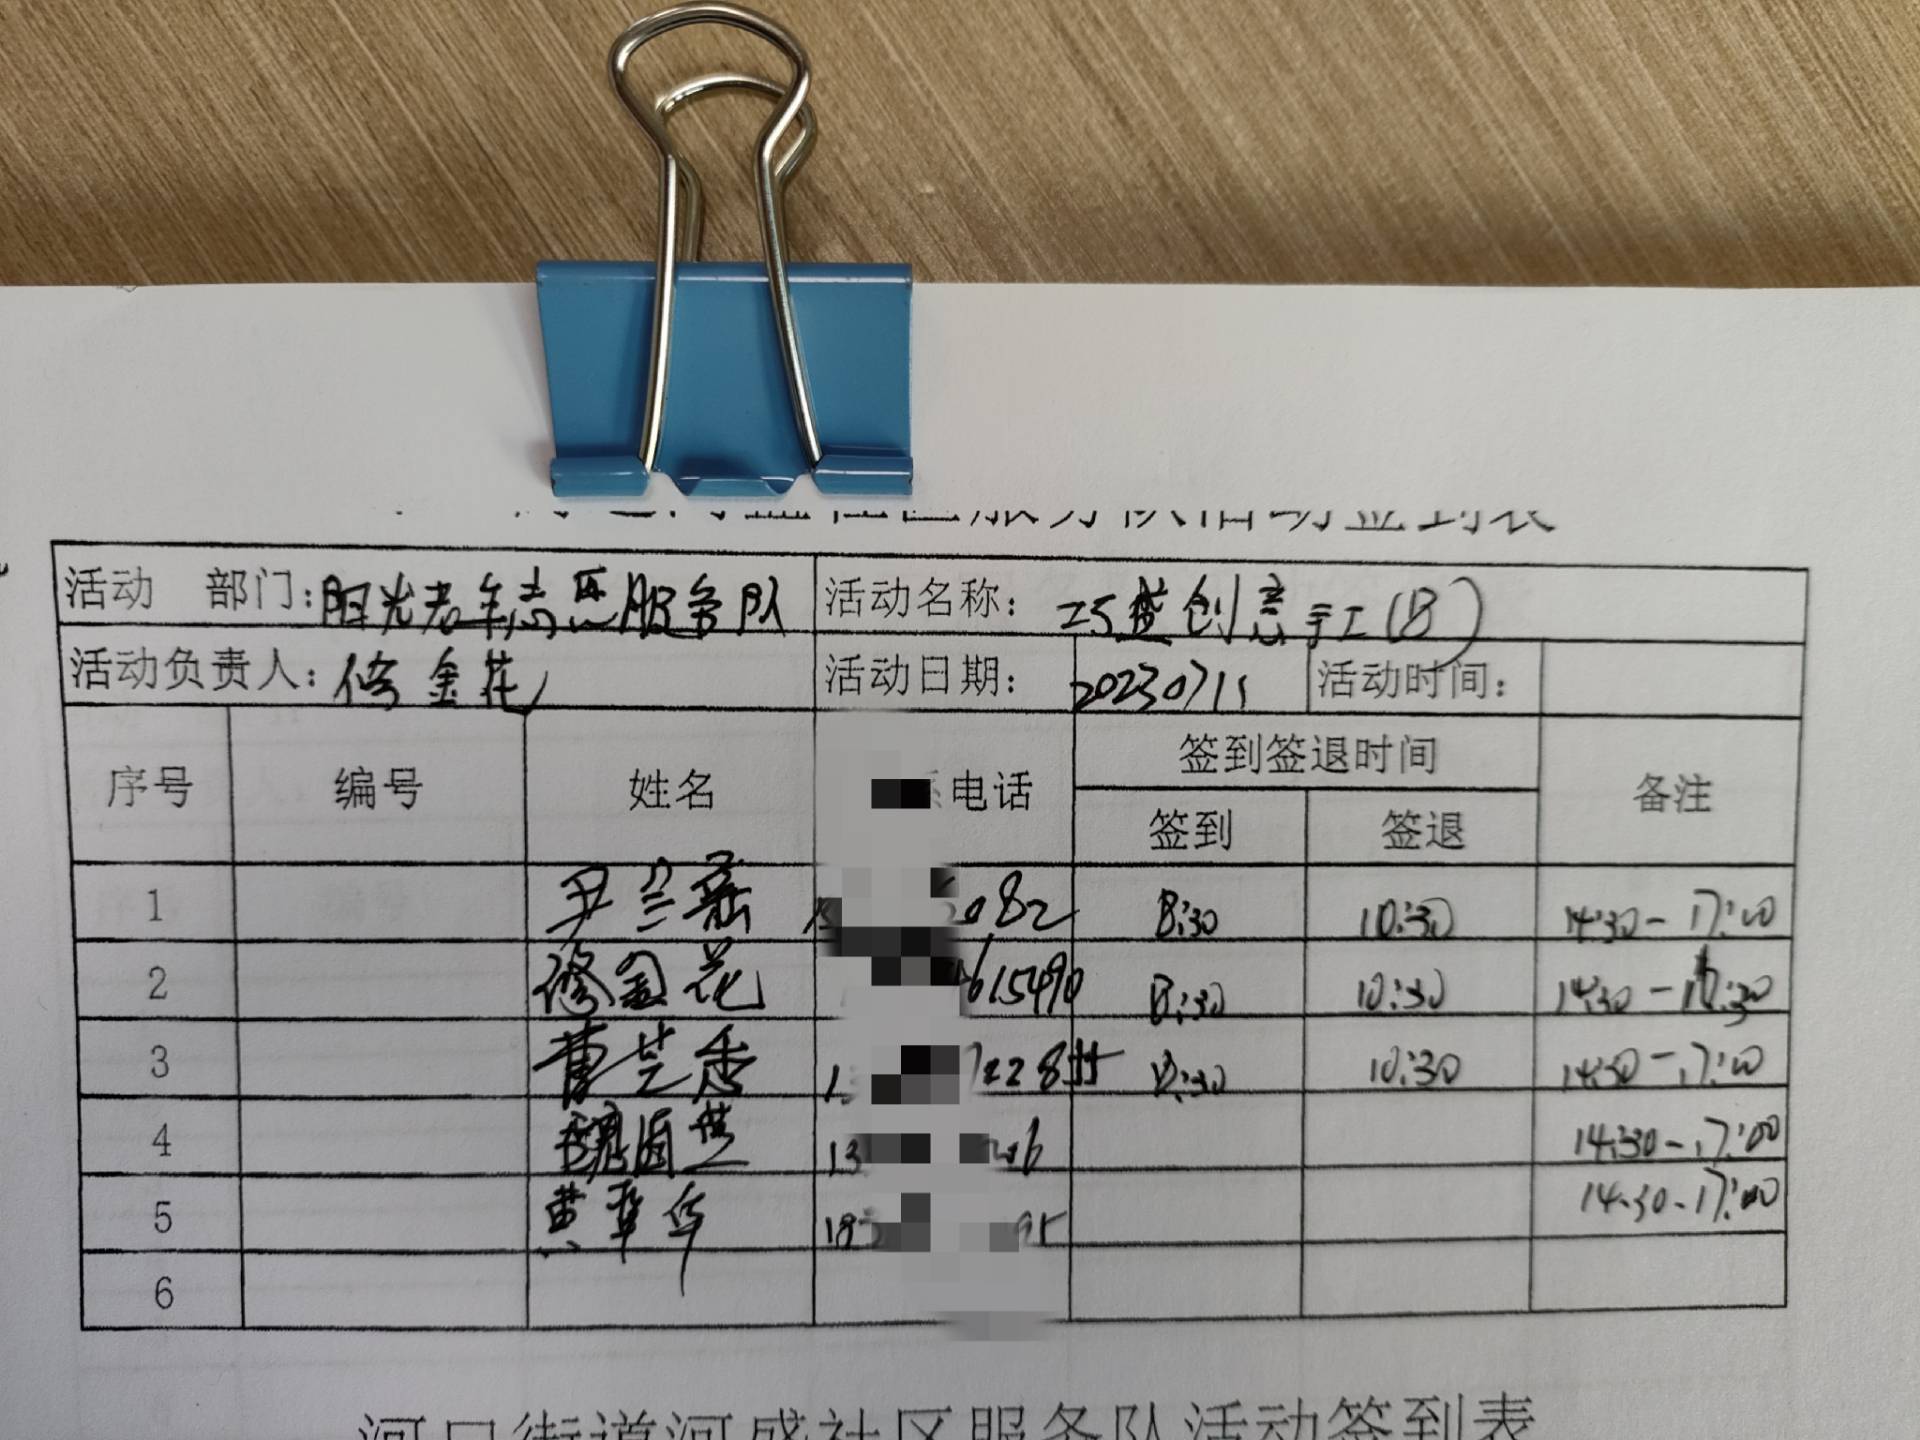 服务队活动签到表
活动 部门：阳光老年志愿服务队 活动名称：巧盛创意手工(B)
活动负责人：修金花 活动日期：20230711 活动时间：
序号 编号 姓名 电话 签到签退时间 备注
签到 签退
1 尹兰 082 8:30 10:30 14:30-17:00
2 修金花 615490 8:30 10:30 14:30-
3 曹芝香 13 228 8:30 10:30 14:30-17:00
4 魏 13 14:30-17:00
5 黄翠华 18 95 14:30-17:00
6
河口街道河盛社区服务队活动签到表